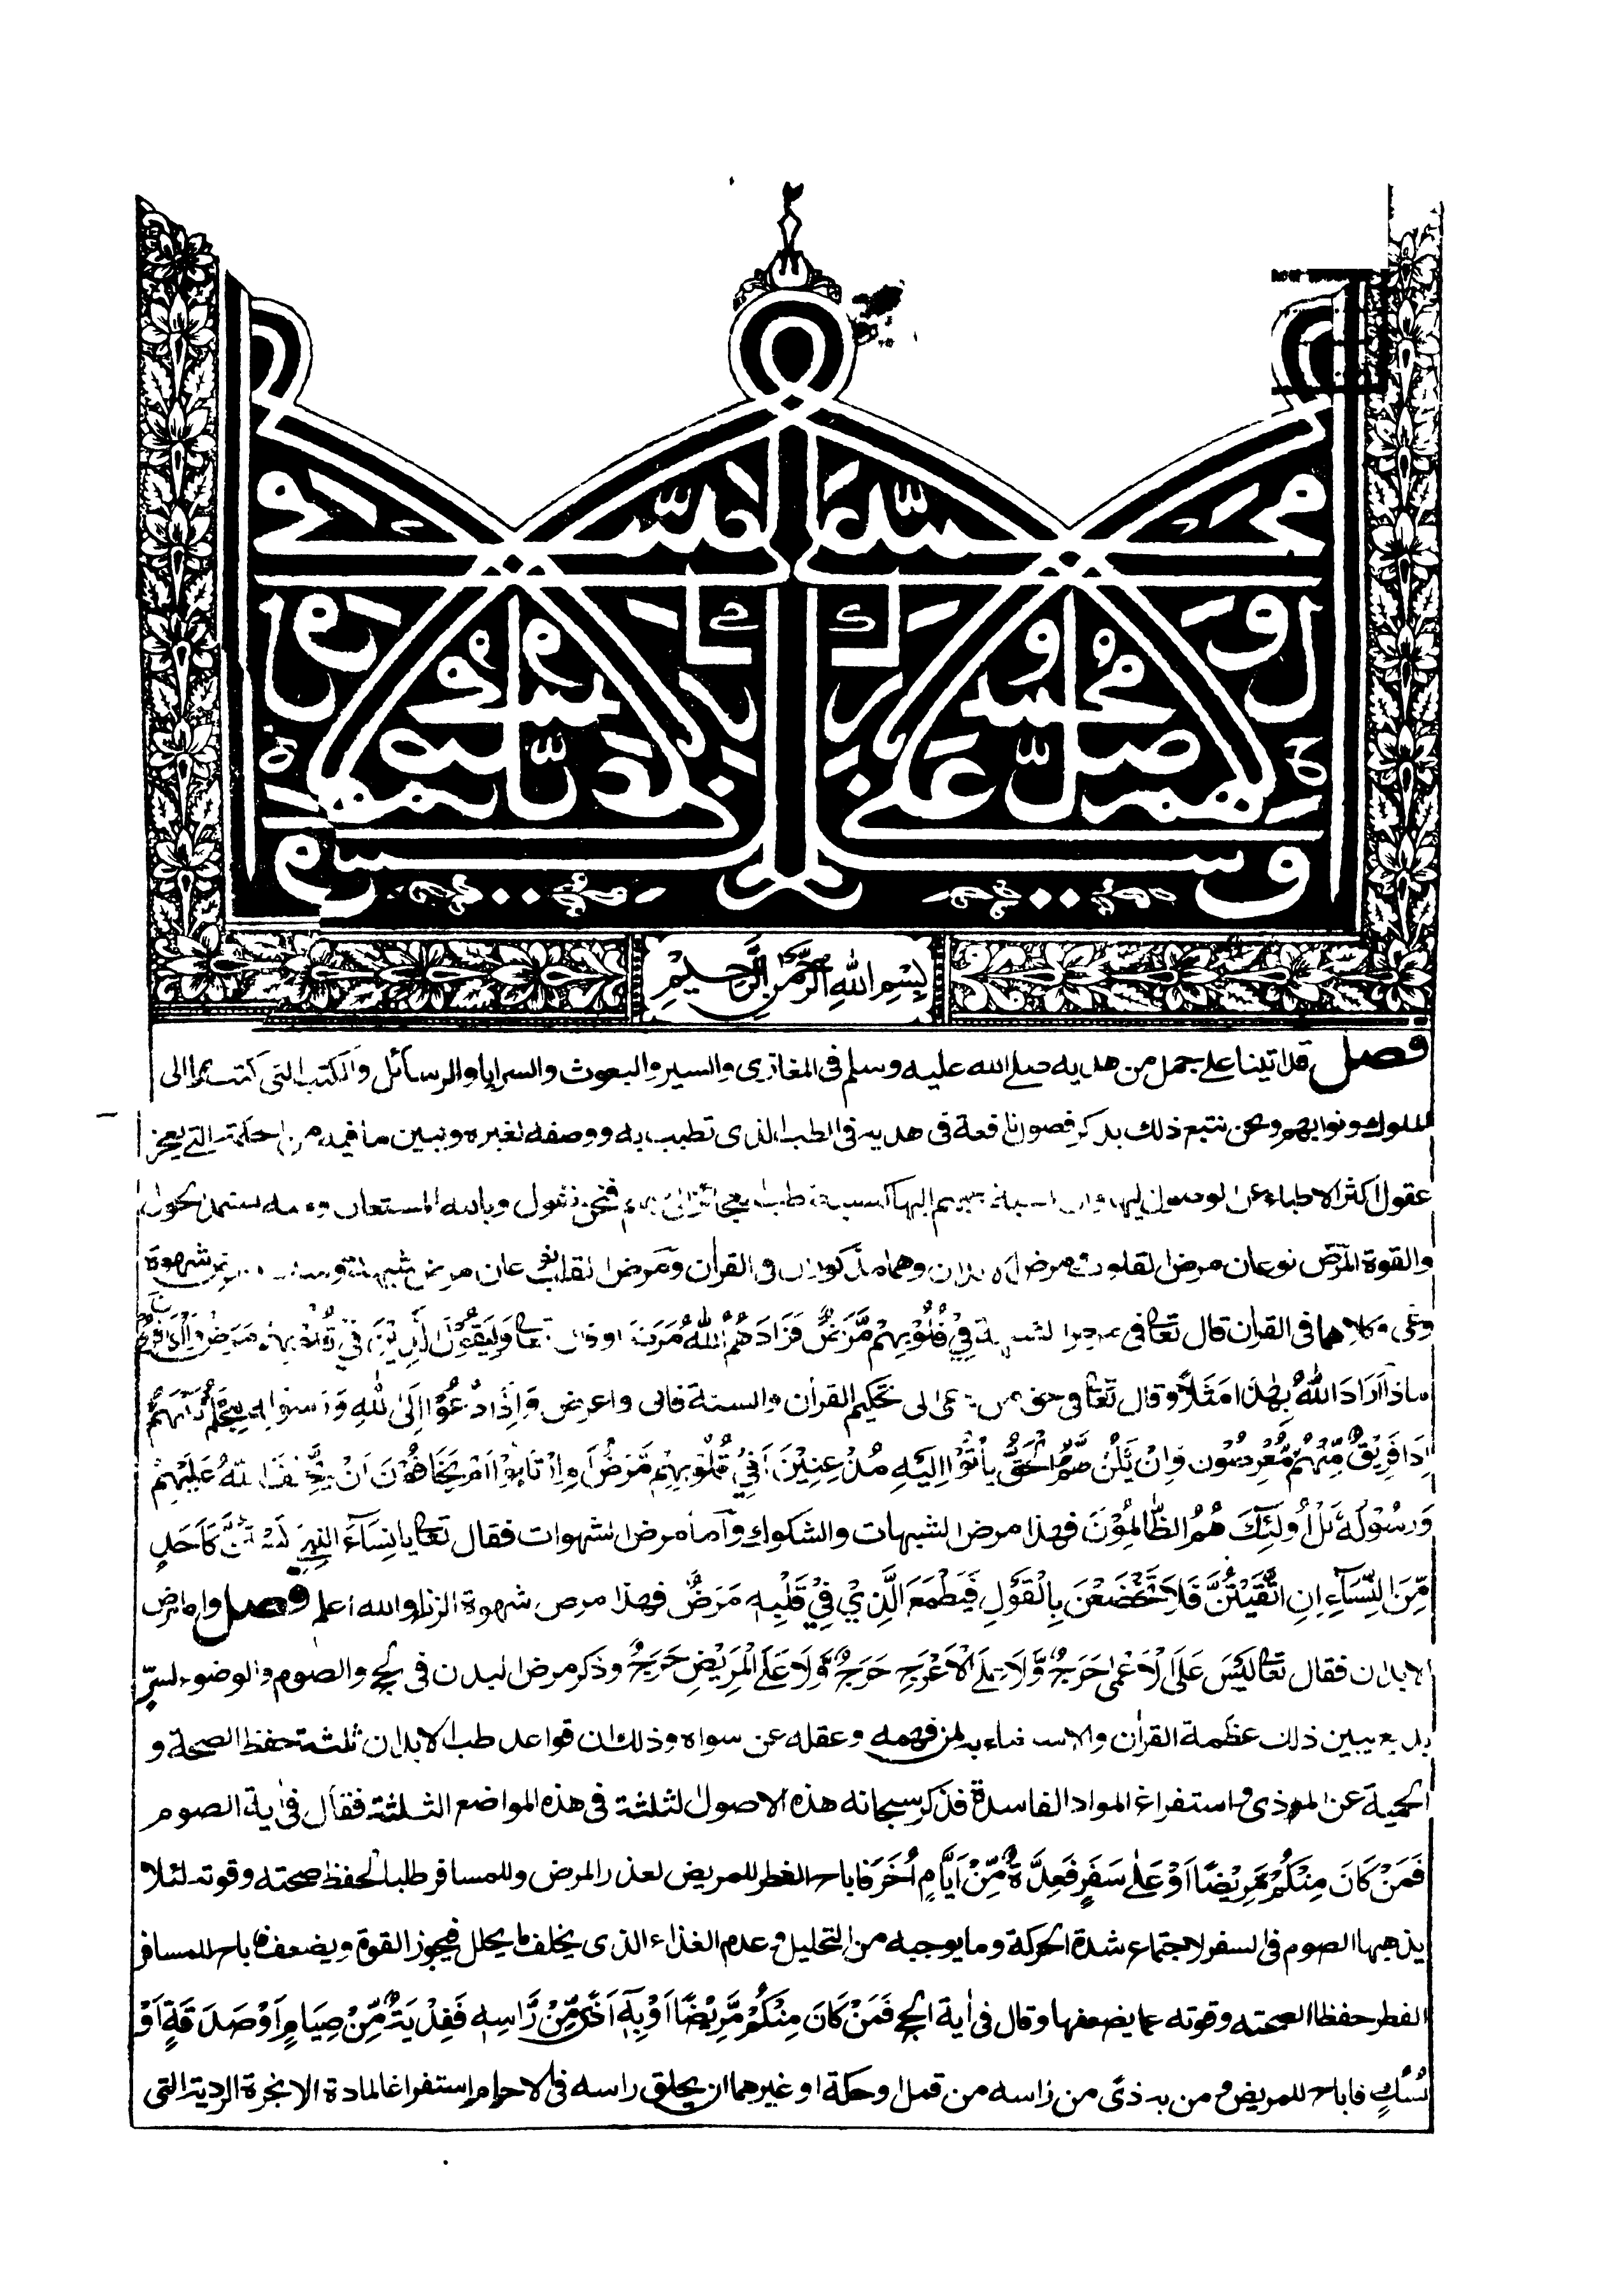 ٢
بِسْمِ اللهِ الرَّحْمٰنِ الرَّحِيْمِ
فصل قد اتينا على جمل من هديه صلى الله عليه وسلم فى المغازى والسير والبعوث والسرايا والرسائل والكتب التى كتب بها الى
الملوك ونوابهم ونحن نتبع ذلك بذكر فصول نافعة فى هديه فى الطب الذى تطبب به ووصفه لغيره ونبين ما فيه من الحكمة التى يعجز
عقول اكثر الاطباء عن الوصول اليها وان نسبة طبهم اليها كنسبة طب العجائز الى طبهم فنحن نقول وبالله المستعان ومنه نستمد الحول
والقوة المرض نوعان مرض القلوب ومرض الابدان وهما مذكوران فى القران ومرض القلب نوعان مرض شبهة و مرض شهوة
وغى وكلاهما فى القران قال تعالى فى مرض الشبهة فِيْ قُلُوْبِهِمْ مَّرَضٌ فَزَادَهُمُ اللهُ مَرَضًا وقال تعالى وَلِيَقُوْلَ الَّذِيْنَ فِيْ قُلُوْبِهِمْ مَرَضٌ وَالْكَافِرُوْنَ
مَاذَا اَرَادَ اللهُ بِهٰذَا مَثَلًا وقال تعالى فى حق من دعى الى تحكيم القران والسنة فابى واعرض وَاِذَا دُعُوْا اِلَى اللهِ وَرَسُوْلِهِ لِيَحْكُمَ بَيْنَهُمْ
اِذَا فَرِيْقٌ مِّنْهُمْ مُّعْرِضُوْنَ وَاِنْ يَكُنْ لَّهُمُ الْحَقُّ يَأْتُوْا اِلَيْهِ مُذْعِنِيْنَ اَفِيْ قُلُوْبِهِمْ مَّرَضٌ اَمِ ارْتَابُوْا اَمْ يَخَافُوْنَ اَنْ يَّحِيْفَ اللهُ عَلَيْهِمْ
وَرَسُوْلُهٗ بَلْ اُولٰئِكَ هُمُ الظّٰالِمُوْنَ فهذا مرض الشبهات والشكوك وأما مرض الشهوات فقال تعالى يَا نِسَآءَ النَّبِيِّ لَسْتُنَّ كَاَحَدٍ
مِّنَ النِّسَآءِ اِنِ اتَّقَيْتُنَّ فَلَا تَخْضَعْنَ بِالْقَوْلِ فَيَطْمَعَ الَّذِيْ فِيْ قَلْبِهٖ مَرَضٌ فهذا مرض شهوة الزنا والله اعلم فصل واما مرض
الابدان فقال تعالى لَيْسَ عَلَى الْاَعْمٰى حَرَجٌ وَّلَا عَلَى الْاَعْرَجِ حَرَجٌ وَّلَا عَلَى الْمَرِيْضِ حَرَجٌ وذكر مرض البدن فى الحج والصوم والوضوء لسِرٍّ
بديع يبين ذلك عظمة القران والاستغناء به لمن فهمه وعقله عن سواه وذلك ان قواعد طب الابدان ثلثة حفظ الصحة و
الحمية عن الموذى و استفراغ المواد الفاسدة فذكر سبحانه هذه الاصول الثلثة فى هذه المواضع الثلثة فقال فى اٰية الصوم
فَمَنْ كَانَ مِنْكُمْ مَّرِيْضًا اَوْ عَلٰى سَفَرٍ فَعِدَّةٌ مِّنْ اَيَّامٍ اُخَرَ فاباح الفطر للمريض لعذر المرض وللمسافر طلبا لحفظ صحته وقوته لئلا
يذهبها الصوم فى السفر لاجتماع شدة الحركة وما يوجبه من التحليل و عدم الغذاء الذى يخلف ما يحلل فيجوز القوة ويضعف فاباح للمسافر
الفطر حفظا لصحته وقوته عما يضعفها وقال فى اٰية الحج فَمَنْ كَانَ مِنْكُمْ مَّرِيْضًا اَوْ بِهٖٓ اَذًى مِّنْ رَّاسِهٖ فَفِدْيَةٌ مِّنْ صِيَامٍ اَوْ صَدَقَةٍ اَوْ
نُسُكٍ فاباح للمريض و من به اذى من راسه من قمل او حكة او غيرهما ان يحلق راسه فى الاحرام استفراغا لمادة الابخرة الردية التى